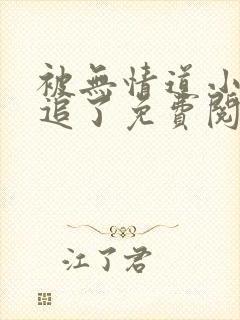 被無情道小
追了免費閱
江了君